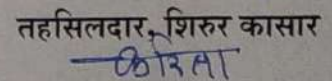 तहसिलदार, शिरुर कासार
करिता